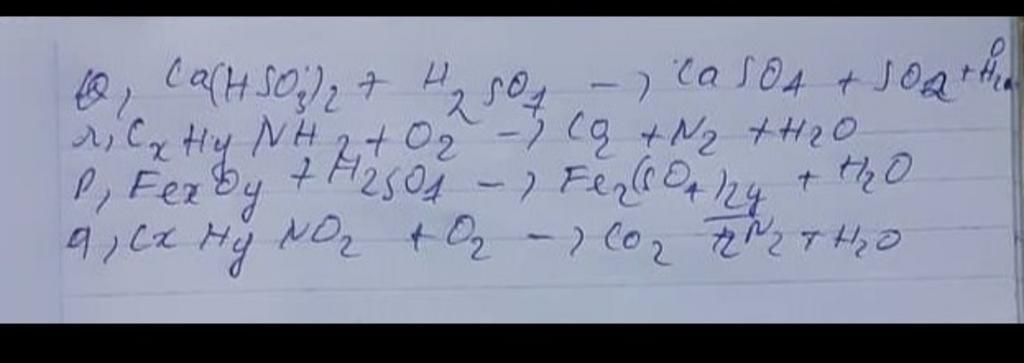 Q, Ca(HSO3)2 + H2SO4 -> CaSO4 + SO2 + H2O
r, CxHyNH2 + O2 -> CO2 + N2 + H2O
P, FexOy + H2SO4 -> Fe2(SO4)2y + H2O
q, CxHyNO2 + O2 -> CO2 + N2 + H2O